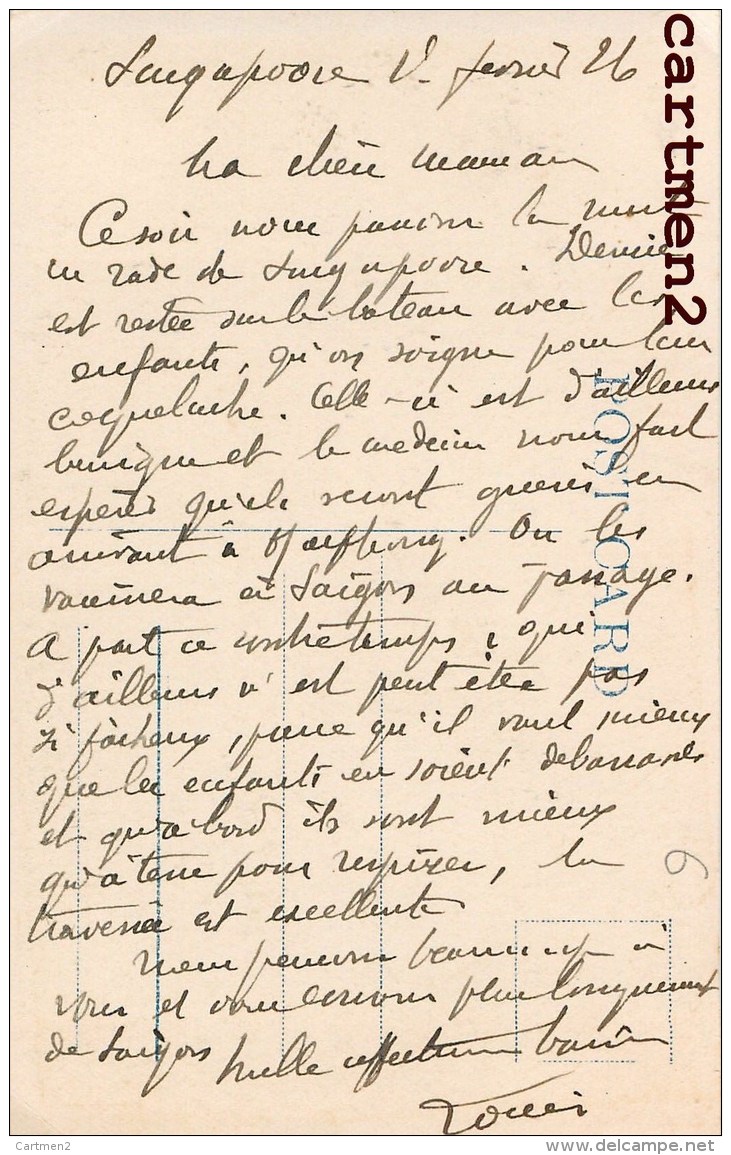 Singapoore 1 février 26
Ma chère maman
Ce soir nous passons la nuit
en rade de Singapoore.
est restée sur le bateau avec les
enfants, qu'on soigne pour leur
coqueluche. Celle-ci est d'ailleurs
benigne et le medecin nous fait
esperer qu'ils seront gueris en
arrivant à Haiphong. On les
vaccinera à Saïgon au passage.
A part ce contretemps, qui
d'ailleurs n'est peut être pas
si fâcheux, parce qu'il vaut mieux
que les enfants en soient debarrassés
et qu'à bord ils sont mieux
qu'à terre pour respirer, la
traversée est excellente
Nous pensons beaucoup à
vous et vous écrirons plus longuement
de Saïgon Mille affectueux baisers
Louis
POST CARD
6
cartmen2
Cartmen2
www.delcampe.net